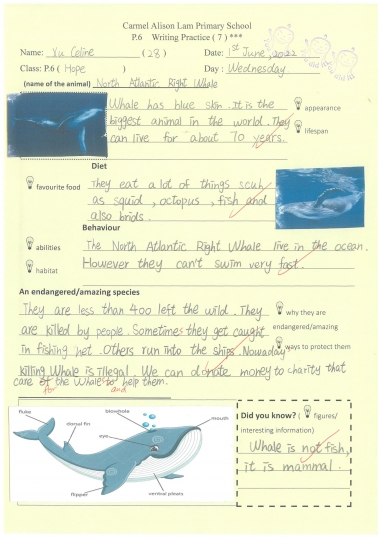 Carmel Alison Lam Primary School
P.6 Writing Practice ( 7 ) ***
Name: Yu Celine ( 28 ) Date: 1st June, 2022
Class: P.6 ( Hope ) Day : Wednesday
(name of the animal) North Atlantic Right Whale
Whale has blue skin. It is the
biggest animal in the world. They
can live for about 70 years.
appearance
lifespan
Diet
favourite food
They eat a lot of things scuh
as squid, octopus, fish and
also brids.
Behaviour
abilities
habitat
The North Atlantic Right Whale live in the ocean.
However they can't swim very fast.
An endangered/amazing species
They are less than 400 left the wild. They
are killed by people. Sometimes they get caught
in fishing net. Others run into the ships. Nowaday
killing Whale is illegal. We can donate money to charity that
care of the Whale to help them.
for and
why they are
endangered/amazing
ways to protect them
fluke
dorsal fin
blowhole
eye
mouth
flipper
ventral pleats
Did you know? ( figures/
interesting information)
Whale is not fish,
it is mammal.